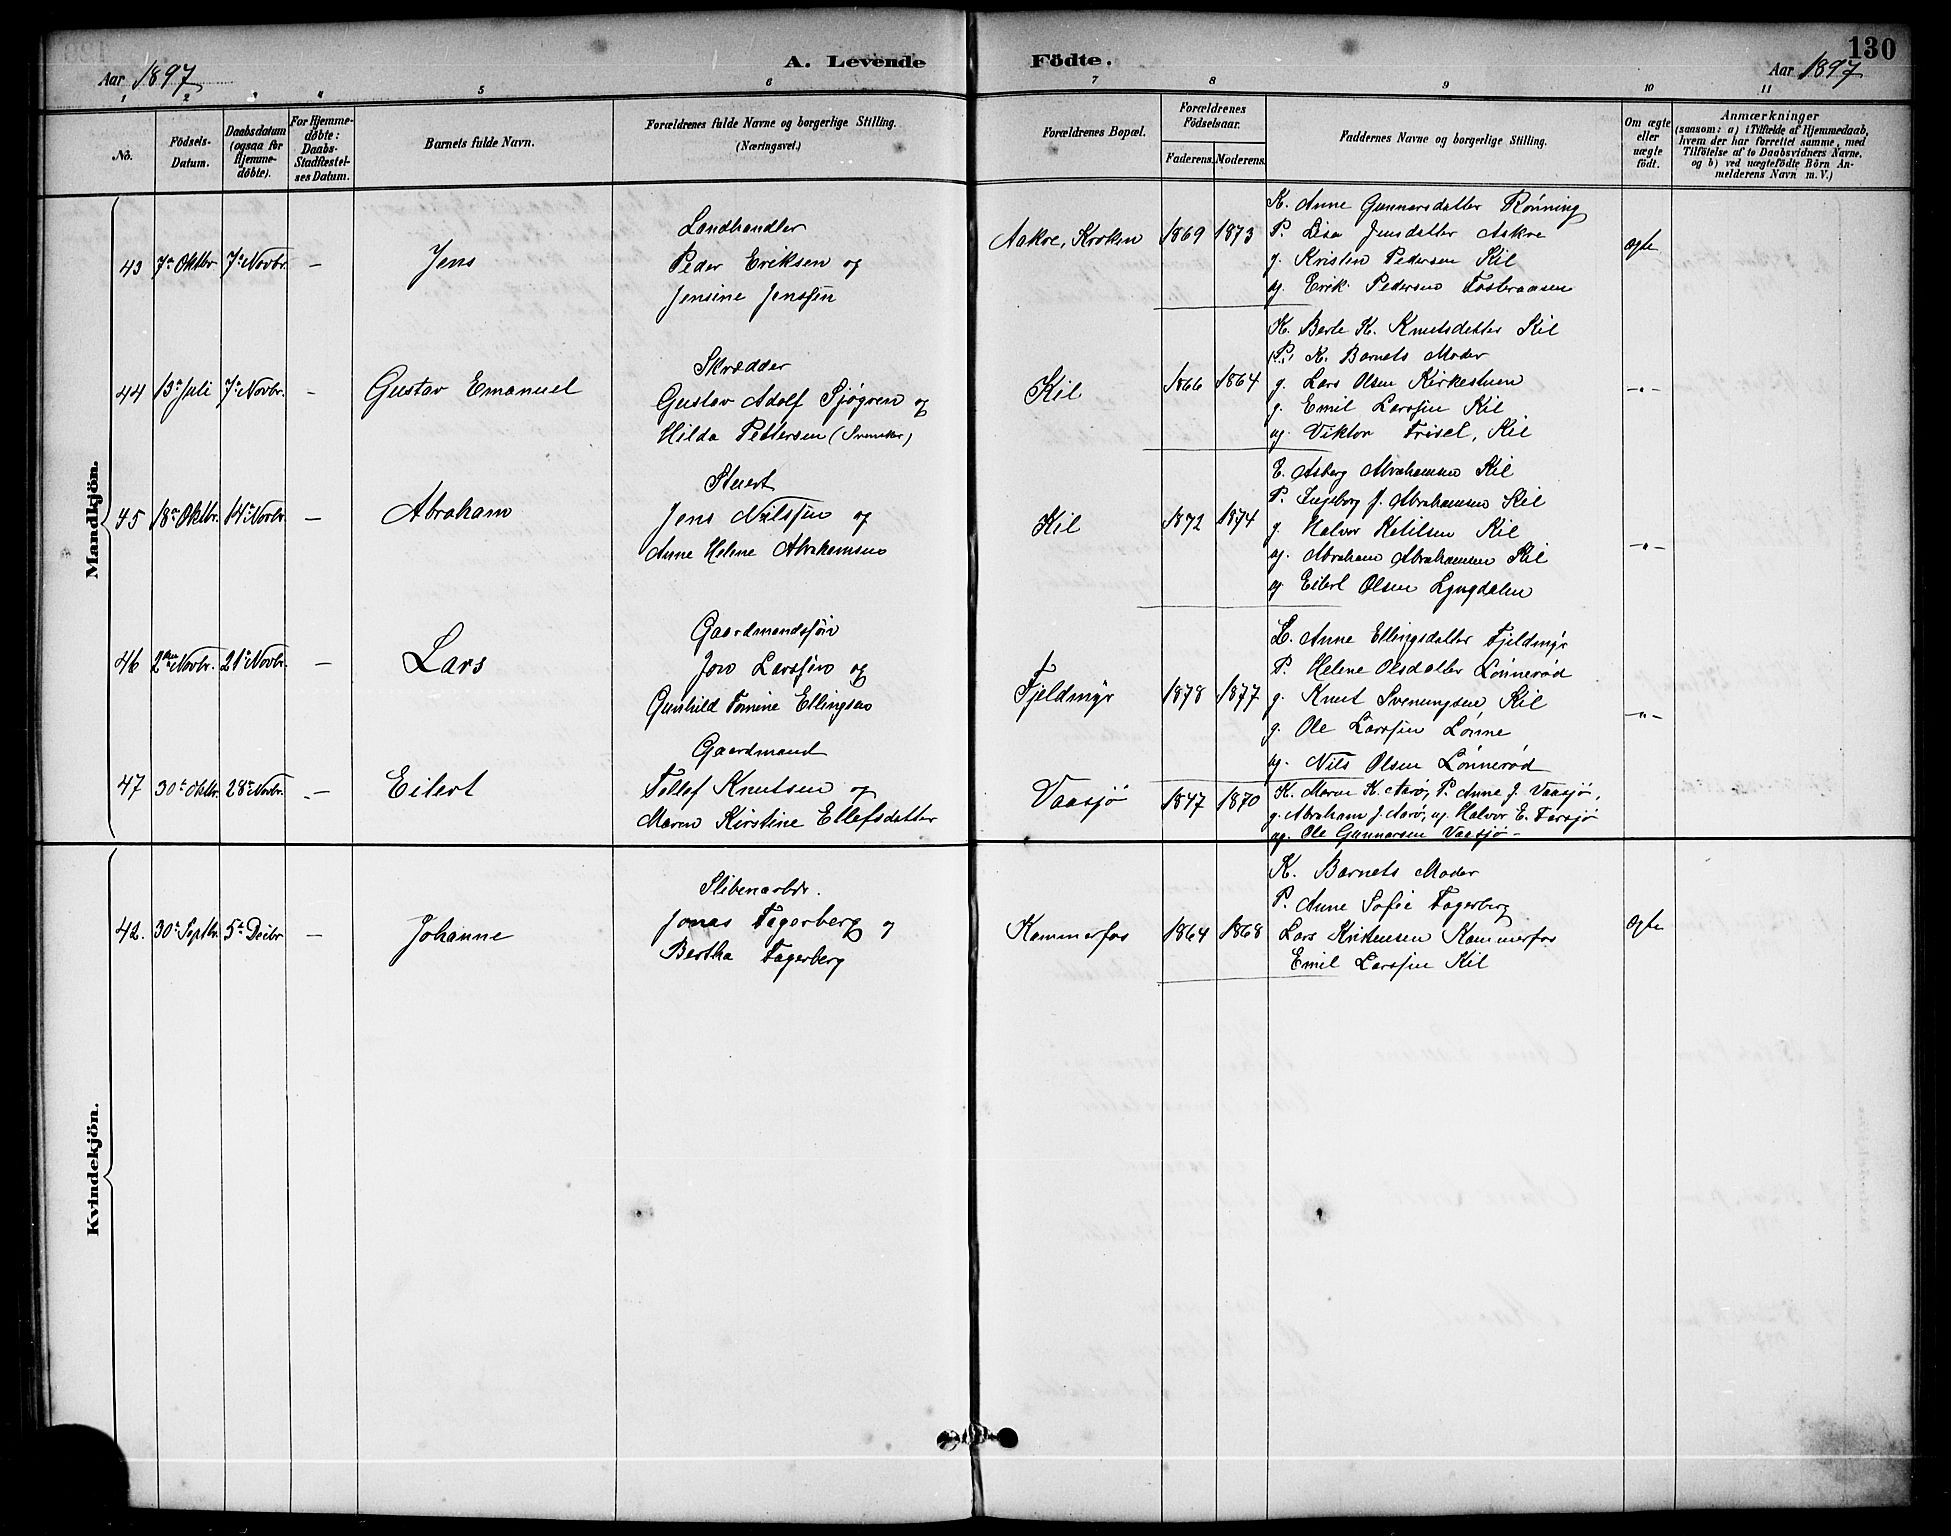 130
Aar 1897 A. Levende Födte. Aar 1897
1 2 3 4 5 6 7 8 9 10 11
No.
Födsels-
Datum.
Daabsdatum
(ogsaa for
Hjemme-
døbte).
For Hjemme-
døbte:
Daabs-
Stadfæstel-
ses Datum.
Barnets fulde Navn.
Forældrenes fulde Navne og borgerlige Stilling.
(Næringsvei.)
Forældrenes Bopæl.
Forældrenes
Födselsaar.
Faderens. Moderens.
Faddernes Navne og borgerlige Stilling.
Om ægte
eller
uægte
födt.
Anmærkninger
(saasom: a) i Tilfælde af Hjemmedaab,
hvem der har forrettet samme, med
Tilföielse af to Daabsvidners Navne.
og b) ved uægtefödte Börn An-
melderens Navn m. V.)
Mandkjön.
43 7de Oktbr. 7de Novbr. — Jens
Landhandler
Peder Eriksen og
Jensine Jenssen
Aakre, Kroken 1869 1873
K. Anne Gunnarsdatter Rønning
P. Lisa Jensdatter Aakre
g. Kristen Pedersen Kil
ug. Erik Pedersen
Ægte
44 13de Juli 7de Novbr. — Gustav Emanuel
Skrædder
Gustav Adolf Sjøgren og
Hilda Pettersen (Svensker)
Kil 1866 1864
K. Berte K. Knutsdatter Kil
P. K. Barnets Moder
g. Lars Olsen Kirkestuen
g. Emil Larssen Kil
ug. Viktor Frisel, Kil
—"—
45 18de Oktbr. 14de Novbr. — Abraham
Stuert
Jens Nilssen og
Anne Helene Abrahamsen
Kil 1872 1874
E. Asberg Abrahamsen Kil
P. Ingeborg J. Abrahamsen Kil
g. Halvor Ketilsen Kil
ug. Abraham Abrahamsen Kil
ug Eilert Olsen Lyngdalen
—"—
46 2den Novbr. 21de Novbr. — Lars
Gaardmandssøn
Jon Larssen og
Gunhild Tomine Ellingsen
Fjeldmyr 1878 1877
E. Anne Ellingsdatter Fjeldmyr
P. Helene Olsdatter Lønnerød
g. Knut Svenungsen Kil
g. Ole Larssen Lønne
ug. Nils Olsen Lønnerød
—"—
47 30te Oktbr. 28de Novbr. — Eilert
Gaardmand
Tellef Knutsen og
Maren Kirstine Ellefsdatter
Vaasjø 1847 1870
K. Maren K. Aarø, P. Anne J. Vaasjø,
g. Abraham J. Aarø, ug. Halvor E. Farsjø
ug. Ole Gunnarsen Vaasjø —
Kvindekjön.
42. 30te Septbr. 5te Decbr. — Johanne
Slibenarbdr.
Jonas Fagerberg og
Bertha Fagerberg
Kammerfos 1864 1868
K. Barnets Moder
P. Anne Sofie Fagerberg
Lars Kristensen Kammerfos
Emil Larssen Kil
Ægte